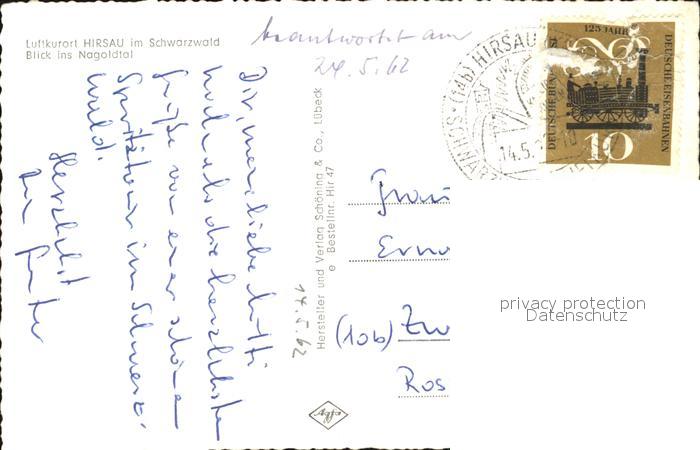 Luftkurort HIRSAU im Schwarzwald
Blick ins Nagoldtal
beantwortet am
24.5.62
Dir, meine liebe Mutti
noch als die herzlichsten
Grüße von einer schönen
Spritztour im Schwarz-
wald.
Herzlichst
Dein Günter
14.5.62
Hersteller und Verlag Schöning & Co., Lübeck
e Bestellnr. Hir 47
Agfa
(14b) HIRSAU
SCHWARZ
14.5.
125 JAHRE
DEUTSCHE EISENBAHNEN
DEUTSCHE BUNDESPOST
10
Frau
Erna
(10b) Zw
Ros
privacy protection
Datenschutz